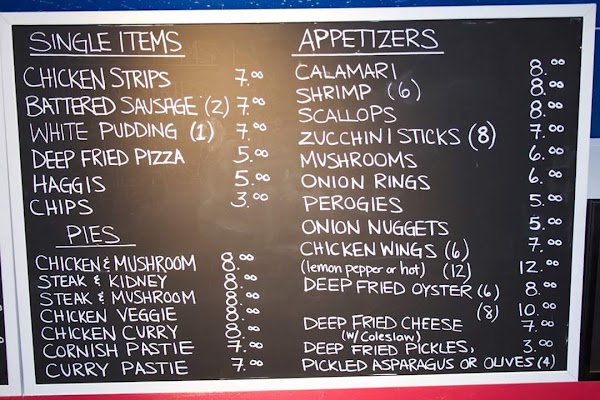 SINGLE ITEMS
CHICKEN STRIPS 7.00
BATTERED SAUSAGE (2) 7.00
WHITE PUDDING (1) 7.00
DEEP FRIED PIZZA 5.00
HAGGIS 5.00
CHIPS 3.00
PIES
CHICKEN & MUSHROOM 8.00
STEAK & KIDNEY 8.00
STEAK & MUSHROOM 8.00
CHICKEN VEGGIE 8.00
CHICKEN CURRY 8.00
CORNISH PASTIE 7.00
CURRY PASTIE 7.00
APPETIZERS
CALAMARI 8.00
SHRIMP (6) 8.00
SCALLOPS 8.00
ZUCCHINI STICKS (8) 7.00
MUSHROOMS 6.00
ONION RINGS 6.00
PEROGIES 5.00
ONION NUGGETS 5.00
CHICKEN WINGS (6) 7.00
(lemon pepper or hot) (12) 12.00
DEEP FRIED OYSTER (6) 8.00
(8) 10.00
DEEP FRIED CHEESE 7.00
(w/ Coleslaw)
DEEP FRIED PICKLES, 3.00
PICKLED ASPARAGUS OR OLIVES (4)